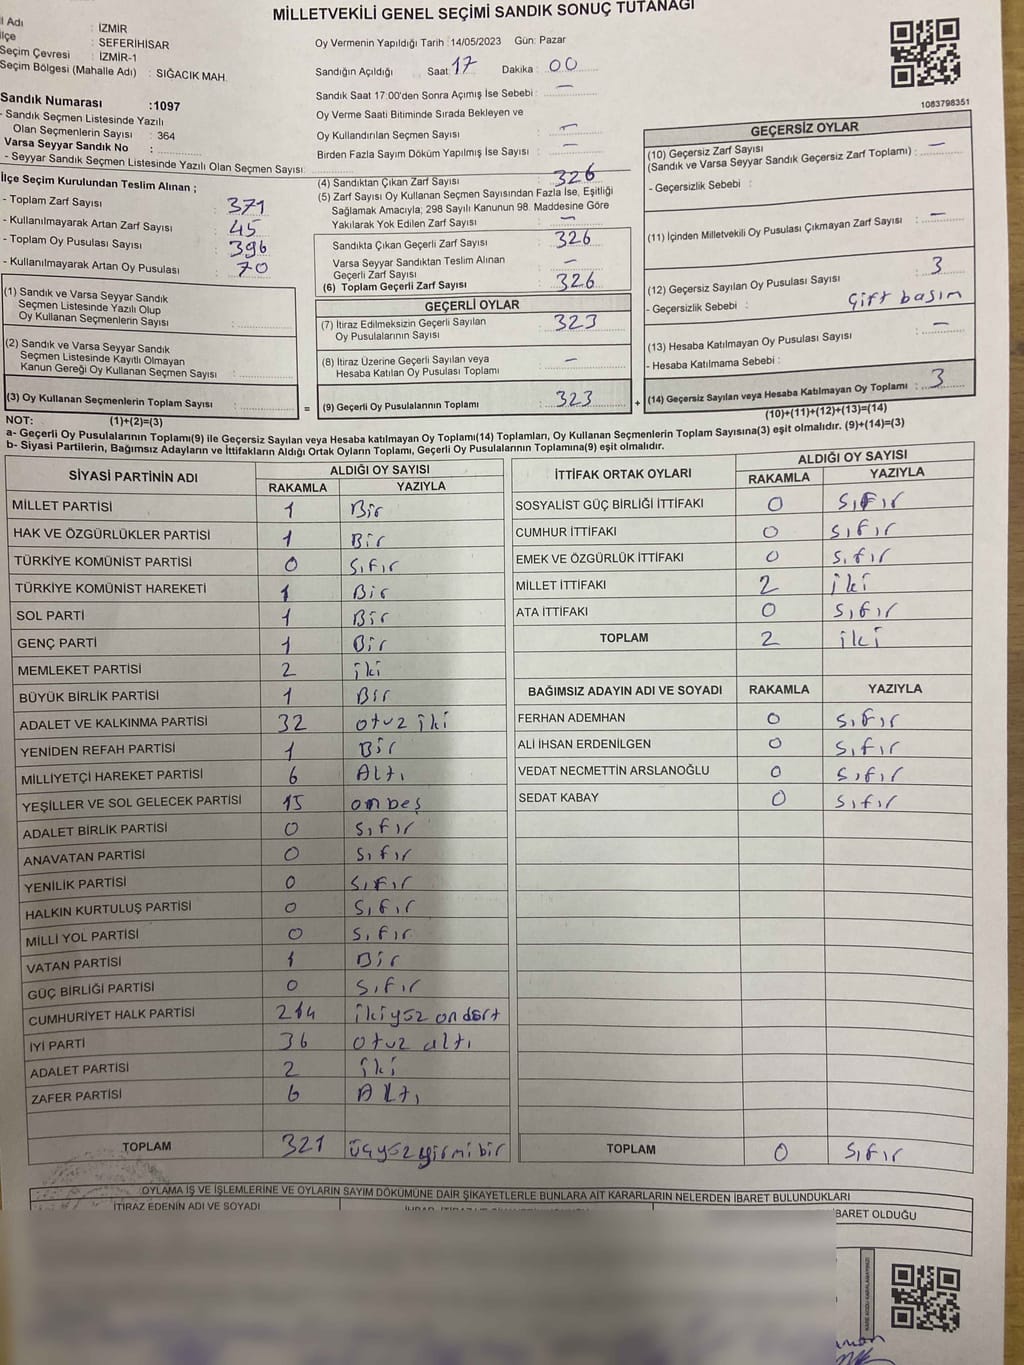 MİLLETVEKİLİ GENEL SEÇİMİ SANDIK SONUÇ TUTANAĞI
İl Adı : İZMİR
İlçe : SEFERİHİSAR
Seçim Çevresi : İZMİR-1
Seçim Bölgesi (Mahalle Adı) : SIĞACIK MAH.
Sandık Numarası :1097
- Sandık Seçmen Listesinde Yazılı
Olan Seçmenlerin Sayısı : 364
Varsa Seyyar Sandık No :
- Seyyar Sandık Seçmen Listesinde Yazılı Olan Seçmen Sayısı:
Oy Vermenin Yapıldığı Tarih :14/05/2023 Gün: Pazar
Sandığın Açıldığı Saat: 17 Dakika : 00
Sandık Saat 17:00'den Sonra Açımış İse Sebebi : —
Oy Verme Saati Bitiminde Sırada Bekleyen ve
Oy Kullandırılan Seçmen Sayısı : —
Birden Fazla Sayım Döküm Yapılmış İse Sayısı : —
1083798351
İlçe Seçim Kurulundan Teslim Alınan ;
- Toplam Zarf Sayısı : 371
- Kullanılmayarak Artan Zarf Sayısı : 45
- Toplam Oy Pusulası Sayısı : 396
- Kullanılmayarak Artan Oy Pusulası : 70
(1) Sandık ve Varsa Seyyar Sandık
Seçmen Listesinde Yazılı Olup
Oy Kullanan Seçmenlerin Sayısı :
(2) Sandık ve Varsa Seyyar Sandık
Seçmen Listesinde Kayıtlı Olmayan
Kanun Gereği Oy Kullanan Seçmen Sayısı :
(3) Oy Kullanan Seçmenlerin Toplam Sayısı :
(1)+(2)=(3)
(4) Sandıktan Çıkan Zarf Sayısı : 326
(5) Zarf Sayısı Oy Kullanan Seçmen Sayısından Fazla İse, Eşitliği
Sağlamak Amacıyla; 298 Sayılı Kanunun 98. Maddesine Göre
Yakılarak Yok Edilen Zarf Sayısı : —
Sandıkta Çıkan Geçerli Zarf Sayısı : 326
Varsa Seyyar Sandıktan Teslim Alınan
Geçerli Zarf Sayısı : —
(6) Toplam Geçerli Zarf Sayısı : 326
GEÇERLİ OYLAR
(7) İtiraz Edilmeksizin Geçerli Sayılan
Oy Pusulalarının Sayısı : 323
(8) İtiraz Üzerine Geçerli Sayılan veya
Hesaba Katılan Oy Pusulası Toplamı : —
= (9) Geçerli Oy Pusulalarının Toplamı : 323 +
GEÇERSİZ OYLAR
(10) Geçersiz Zarf Sayısı
(Sandık ve Varsa Seyyar Sandık Geçersiz Zarf Toplamı) : —
- Geçersizlik Sebebi :
(11) İçinden Milletvekili Oy Pusulası Çıkmayan Zarf Sayısı : —
(12) Geçersiz Sayılan Oy Pusulası Sayısı : 3
- Geçersizlik Sebebi : Çift basım
(13) Hesaba Katılmayan Oy Pusulası Sayısı : —
- Hesaba Katılmama Sebebi :
(14) Geçersiz Sayılan veya Hesaba Katılmayan Oy Toplamı : 3
(10)+(11)+(12)+(13)=(14)
NOT:
a- Geçerli Oy Pusulalarının Toplamı(9) ile Geçersiz Sayılan veya Hesaba katılmayan Oy Toplamı(14) Toplamları, Oy Kullanan Seçmenlerin Toplam Sayısına(3) eşit olmalıdır. (9)+(14)=(3)
b- Siyasi Partilerin, Bağımsız Adayların ve İttifakların Aldığı Ortak Oyların Toplamı, Geçerli Oy Pusulalarının Toplamına(9) eşit olmalıdır.
SİYASİ PARTİNİN ADI ALDIĞI OY SAYISI
RAKAMLA YAZIYLA
MİLLET PARTİSİ 1 Bir
HAK VE ÖZGÜRLÜKLER PARTİSİ 1 Bir
TÜRKİYE KOMÜNİST PARTİSİ 0 Sıfır
TÜRKİYE KOMÜNİST HAREKETİ 1 Bir
SOL PARTİ 1 Bir
GENÇ PARTİ 1 Bir
MEMLEKET PARTİSİ 2 iki
BÜYÜK BİRLİK PARTİSİ 1 Bir
ADALET VE KALKINMA PARTİSİ 32 otuz iki
YENİDEN REFAH PARTİSİ 1 Bir
MİLLİYETÇİ HAREKET PARTİSİ 6 Altı
YEŞİLLER VE SOL GELECEK PARTİSİ 15 onbeş
ADALET BİRLİK PARTİSİ 0 Sıfır
ANAVATAN PARTİSİ 0 Sıfır
YENİLİK PARTİSİ 0 Sıfır
HALKIN KURTULUŞ PARTİSİ 0 Sıfır
MİLLİ YOL PARTİSİ 0 Sıfır
VATAN PARTİSİ 1 Bir
GÜÇ BİRLİĞİ PARTİSİ 0 Sıfır
CUMHURİYET HALK PARTİSİ 214 ikiyüz ondört
İYİ PARTİ 36 otuz altı
ADALET PARTİSİ 2 iki
ZAFER PARTİSİ 6 Altı
TOPLAM 321 üçyüz yirmi bir
İTTİFAK ORTAK OYLARI ALDIĞI OY SAYISI
RAKAMLA YAZIYLA
SOSYALİST GÜÇ BİRLİĞİ İTTİFAKI 0 Sıfır
CUMHUR İTTİFAKI 0 Sıfır
EMEK VE ÖZGÜRLÜK İTTİFAKI 0 Sıfır
MİLLET İTTİFAKI 2 iki
ATA İTTİFAKI 0 Sıfır
TOPLAM 2 iki
BAĞIMSIZ ADAYIN ADI VE SOYADI RAKAMLA YAZIYLA
FERHAN ADEMHAN 0 Sıfır
ALİ İHSAN ERDENİLGEN 0 Sıfır
VEDAT NECMETTİN ARSLANOĞLU 0 Sıfır
SEDAT KABAY 0 Sıfır
TOPLAM 0 Sıfır
OYLAMA İŞ VE İŞLEMLERİNE VE OYLARIN SAYIM DÖKÜMÜNE DAİR ŞİKAYETLERLE BUNLARA AİT KARARLARIN NELERDEN İBARET BULUNDUKLARI
İTİRAZ EDENİN ADI VE SOYADI
İBARET OLDUĞU